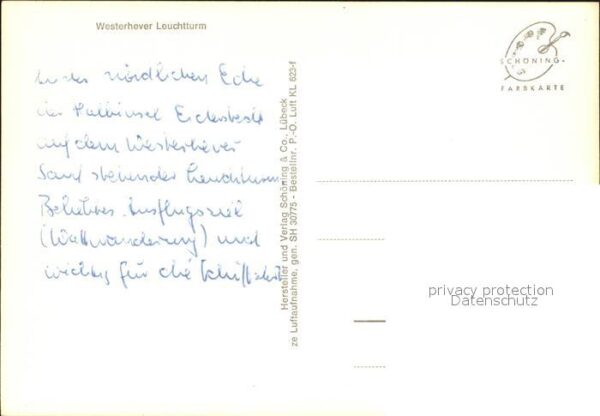 Westerhever Leuchtturm
In der nördlichen Ecke
der Halbinsel Eiderstedt
auf dem Westerhever
Sand stehender Leuchtturm
Beliebtes Ausflugsziel
(Wattwanderung) und
wichtig für die Schiffahrt
Hersteller und Verlag Schöning & Co., Lübeck
ze Luftaufnahme, gen. SH 30775 - Bestellnr. P.-O. Luft KL 623-f
SCHÖNING-
FARBKARTE
privacy protection
Datenschutz